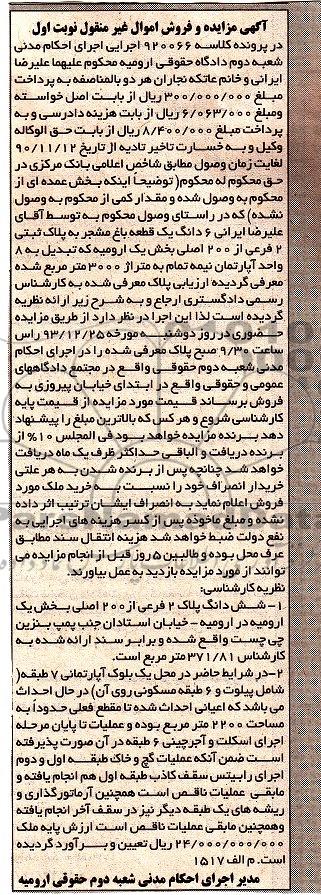 آگهی مزایده و فروش اموال غیر منقول نوبت اول
در پرونده کلاسه ۹۲۰۰۶۶ اجرایی اجرای احکام مدنی
شعبه دوم دادگاه حقوقی ارومیه محکوم علیهما علیرضا
ایرانی و خانم عاتکه نجاران هر دو بالمناصفه به پرداخت
مبلغ ۳۰۰/۰۰۰/۰۰۰ ریال از بابت اصل خواسته
ومبلغ ۶/۰۶۳/۰۰۰ ریال از بابت هزینه دادرسی و به
پرداخت مبلغ ۸/۴۰۰/۰۰۰ ریال از بابت حق الوکاله
وکیل و به خسارت تاخیر تادیه از تاریخ ۹۰/۱۱/۱۲
لغایت زمان وصول مطابق شاخص اعلامی بانک مرکزی در
حق محکوم له محکوم( توضیحاً اینکه بخش عمده ای از
محکوم به وصول شده و مقدار کمی از محکوم به وصول
نشده) که در راستای وصول محکوم به توسط آقای
علیرضا ایرانی ۶ دانگ یک قطعه باغ مشجر به پلاک ثبتی
۲ فرعی از ۲۰۰ اصلی بخش یک ارومیه که تبدیل به ۸
واحد آپارتمان نیمه تمام به متراژ ۳۰۰۰ متر مربع شده
معرفی گردیده ارزیابی پلاک معرفی شده به کارشناس
رسمی دادگستری ارجاع و به شرح زیر ارائه نظریه
گردیده است لذا این اجرا در نظر دارد از طریق مزایده
حضوری در روز دوشنبه مورخه ۹۳/۱۲/۲۵ راس
ساعت ۹/۳۰ صبح پلاک معرفی شده را در اجرای احکام
مدنی شعبه دوم حقوقی واقع در مجتمع دادگاههای
عمومی و حقوقی واقع در ابتدای خیابان پیروزی به
فروش برساند قیمت مورد مزایده از قیمت پایه
کارشناسی شروع و هر کس که بالاترین مبلغ را پیشنهاد
دهد برنده مزایده خواهد بود فی المجلس ۱۰% از
برنده دریافت و الباقی حداکثر ظرف یک ماه دریافت
خواهد شد چنانچه پس از برنده شدن به هر علتی
خریدار انصراف خود را نسبت به خرید ملک مورد
فروش اعلام نماید به انصراف ایشان ترتیب اثر داده
نشده و مبلغ ماخوذه پس از کسر هزینه های اجرایی به
نفع دولت ضبط خواهد شد هزینه انتقال سند مطابق
عرف محل بوده و طالبین ۵ روز قبل از انجام مزایده می
توانند از مورد مزایده بازدید به عمل بیاورند.
نظریه کارشناسی:
۱- شش دانگ پلاک ۲ فرعی از ۲۰۰ اصلی بخش یک
ارومیه در ارومیه - خیابان استادان جنب پمپ بنزین
چی چست واقع شده و برابر سند ارائه شده به
کارشناس ۳۷۱/۸۱ متر مربع است.
۲-در شرایط حاضر در محل یک بلوک آپارتمانی ۷ طبقه(
شامل پیلوت و ۶ طبقه مسکونی روی آن) در حال احداث
می باشد که اعیانی احداث شده تا مقطع فعلی حدوداً به
مساحت ۲۲۰۰ متر مربع بوده و عملیات تا پایان مرحله
اجرای اسکلت و آجرچینی ۶ طبقه در آن صورت پذیرفته
است ضمن آنکه عملیات گچ و خاک طبقه اول و دوم
اجرای رابیتس سقف کاذب طبقه اول هم انجام یافته و
مابقی عملیات ناقص است همچنین آرماتورگذاری و
ریشه های یک طبقه دیگر نیز در سقف آخر انجام یافته
وهمچنین مابقی عملیات ناقص است ارزش پایه ملک
۲۴/۰۰۰/۰۰۰/۰۰۰ ریال تعیین و برآورد گردیده
است. م الف ۱۵۱۷
مدیر اجرای احکام مدنی شعبه دوم حقوقی ارومیه